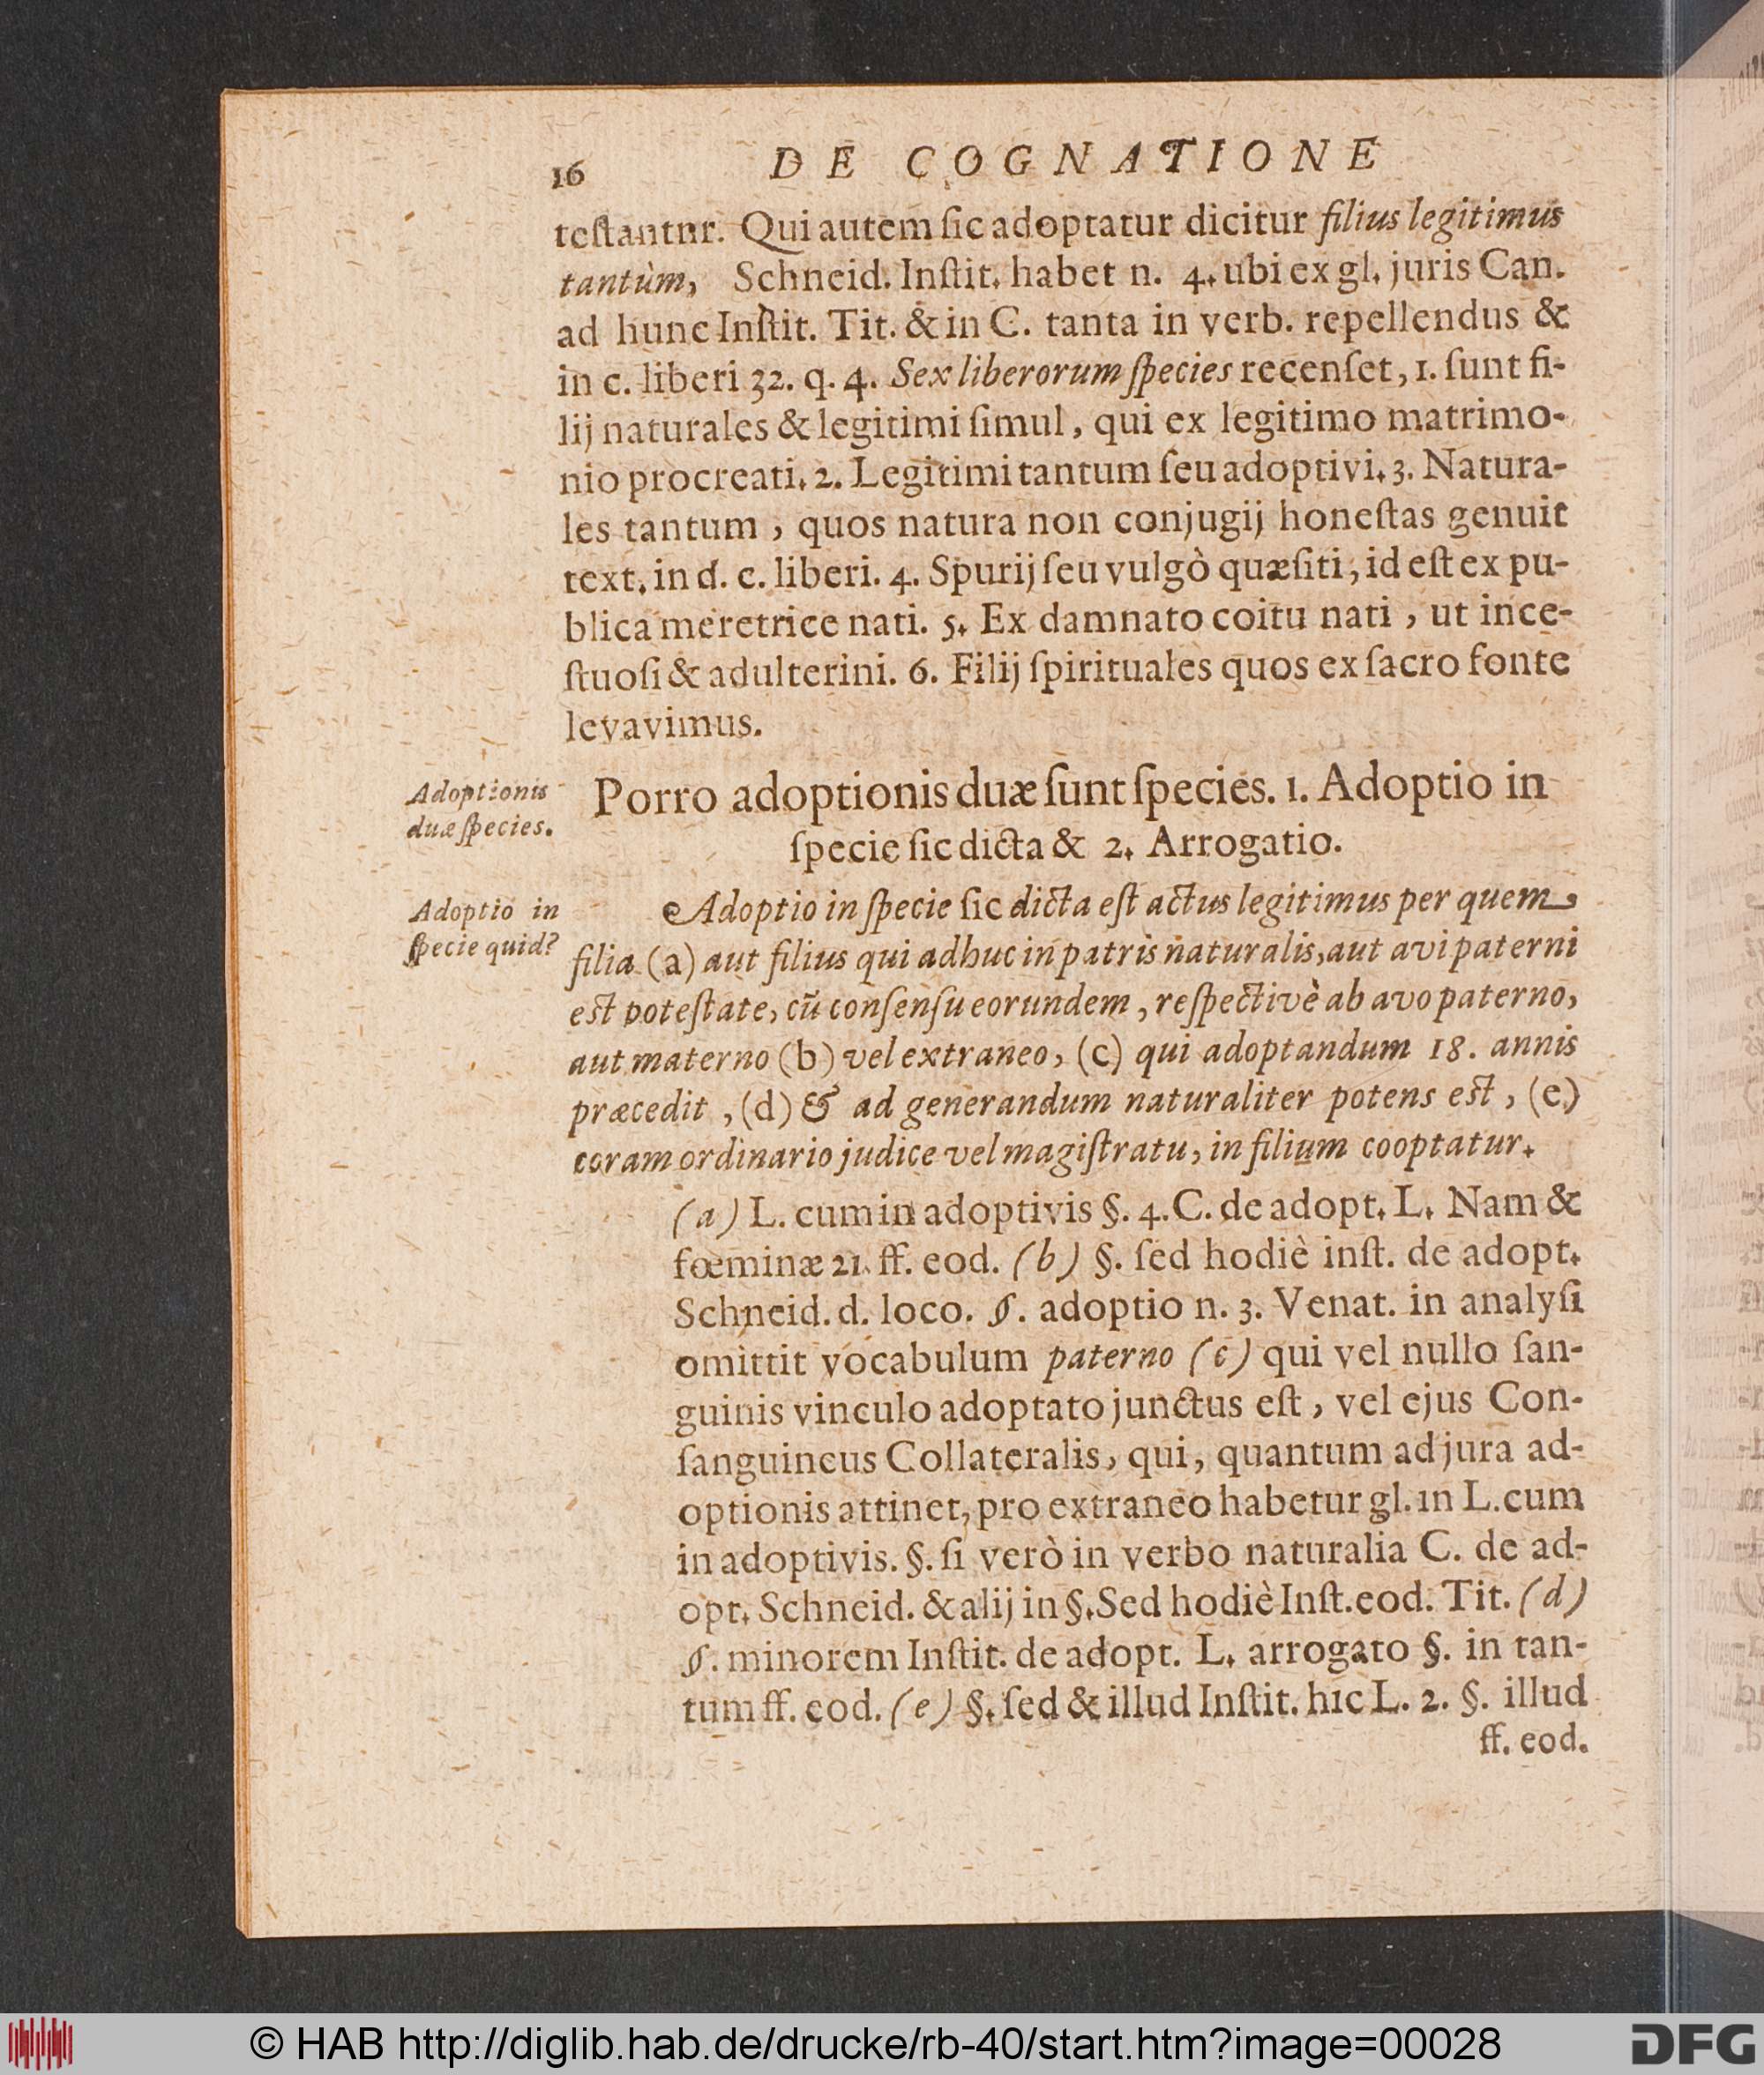 16 DE COGNATIONE
teſtantnr. Qui autem ſic adoptatur dicitur filius legitimus
tantùm, Schneid. Inſtit. habet n. 4. ubi ex gl. juris Can.
ad hunc Inſtit. Tit. & in C. tanta in verb. repellendus &
in c. liberi 32. q. 4. Sex liberorum ſpecies recenſet, 1. ſunt fi-
lij naturales & legitimi ſimul, qui ex legitimo matrimo-
nio procreati. 2. Legitimi tantum ſeu adoptivi. 3. Natura-
les tantum, quos natura non conjugij honeſtas genuit
text. in d. c. liberi. 4. Spurij ſeu vulgò quæſiti, id eſt ex pu-
blica meretrice nati. 5. Ex damnato coitu nati, ut ince-
ſtuoſi & adulterini. 6. Filij ſpirituales quos ex ſacro fonte
levavimus.
Adoptionis
duæ ſpecies.
Porro adoptionis duæ ſunt ſpecies. 1. Adoptio in
ſpecie ſic dicta & 2. Arrogatio.
Adoptio in
ſpecie quid?
Adoptio in ſpecie ſic dicta eſt actus legitimus per quem
filia (a) aut filius qui adhuc in patris naturalis, aut avi paterni
eſt poteſtate, cũ conſenſu eorundem, reſpectivè ab avo paterno,
aut materno (b) vel extraneo, (c) qui adoptandum 18. annis
præcedit, (d) & ad generandum naturaliter potens eſt, (e)
coram ordinario judice vel magiſtratu, in filium cooptatur.
(a) L. cum in adoptivis §. 4. C. de adopt. L. Nam &
fœminæ 21. ff. eod. (b) §. ſed hodiè inſt. de adopt.
Schneid. d. loco. §. adoptio n. 3. Venat. in analyſi
omittit vocabulum paterno (c) qui vel nullo ſan-
guinis vinculo adoptato junctus eſt, vel ejus Con-
ſanguineus Collateralis, qui, quantum ad jura ad-
optionis attinet, pro extraneo habetur gl. in L. cum
in adoptivis. §. ſi verò in verbo naturalia C. de ad-
opt. Schneid. & alij in §. Sed hodiè Inſt. eod. Tit. (d)
§. minorem Inſtit. de adopt. L. arrogato §. in tan-
tum ff. eod. (e) §. ſed & illud Inſtit. hic L. 2. §. illud
ff. eod.
© HAB http://diglib.hab.de/drucke/rb-40/start.htm?image=00028
DFG